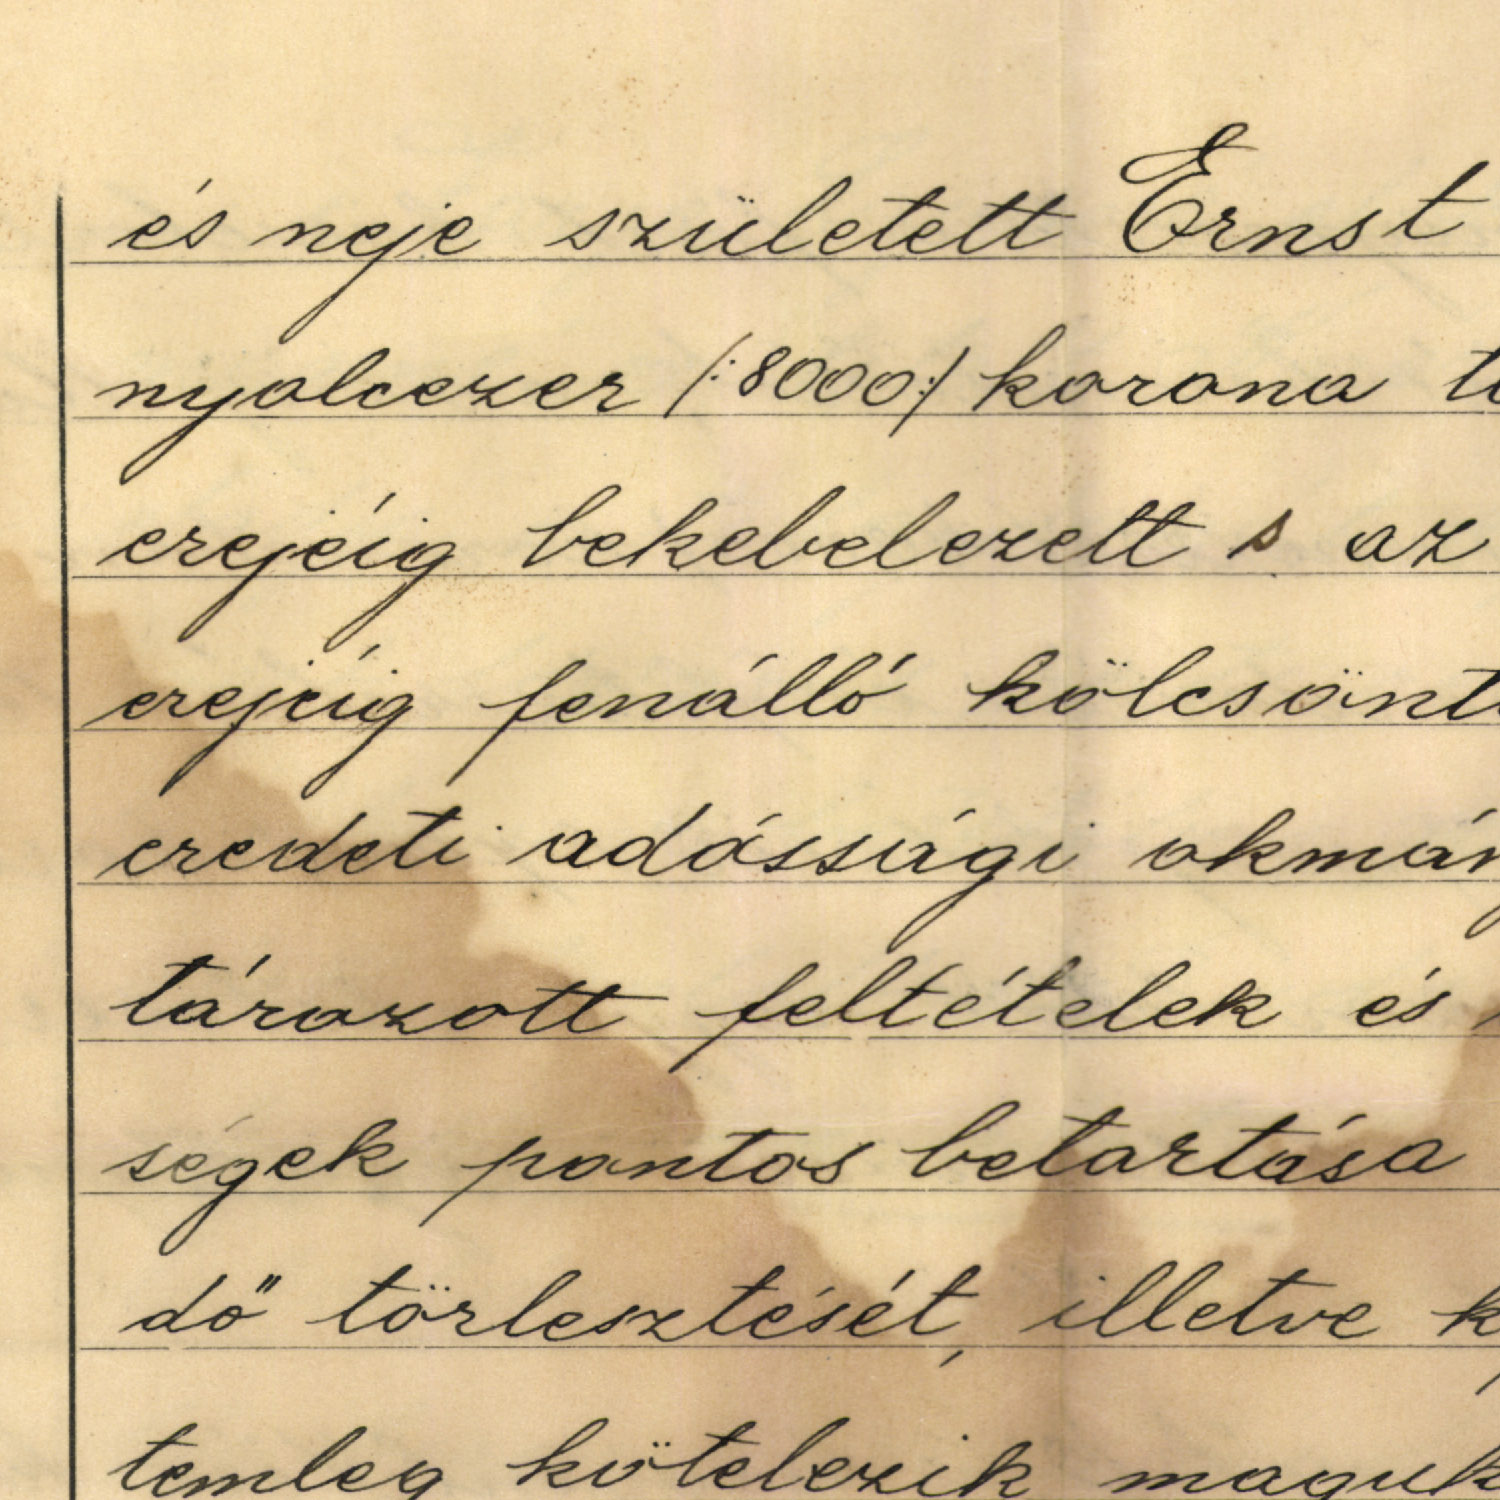 és neje született Ernst
nyolcezer /:8000:/ korona
erejéig bekebelezett s az
erejéig fenálló kölcsönt
eredeti adóssági okmán
tározott feltételek és
ségek pontos betartása
dő törlesztését, illetve k
temleg kötelezik maguk